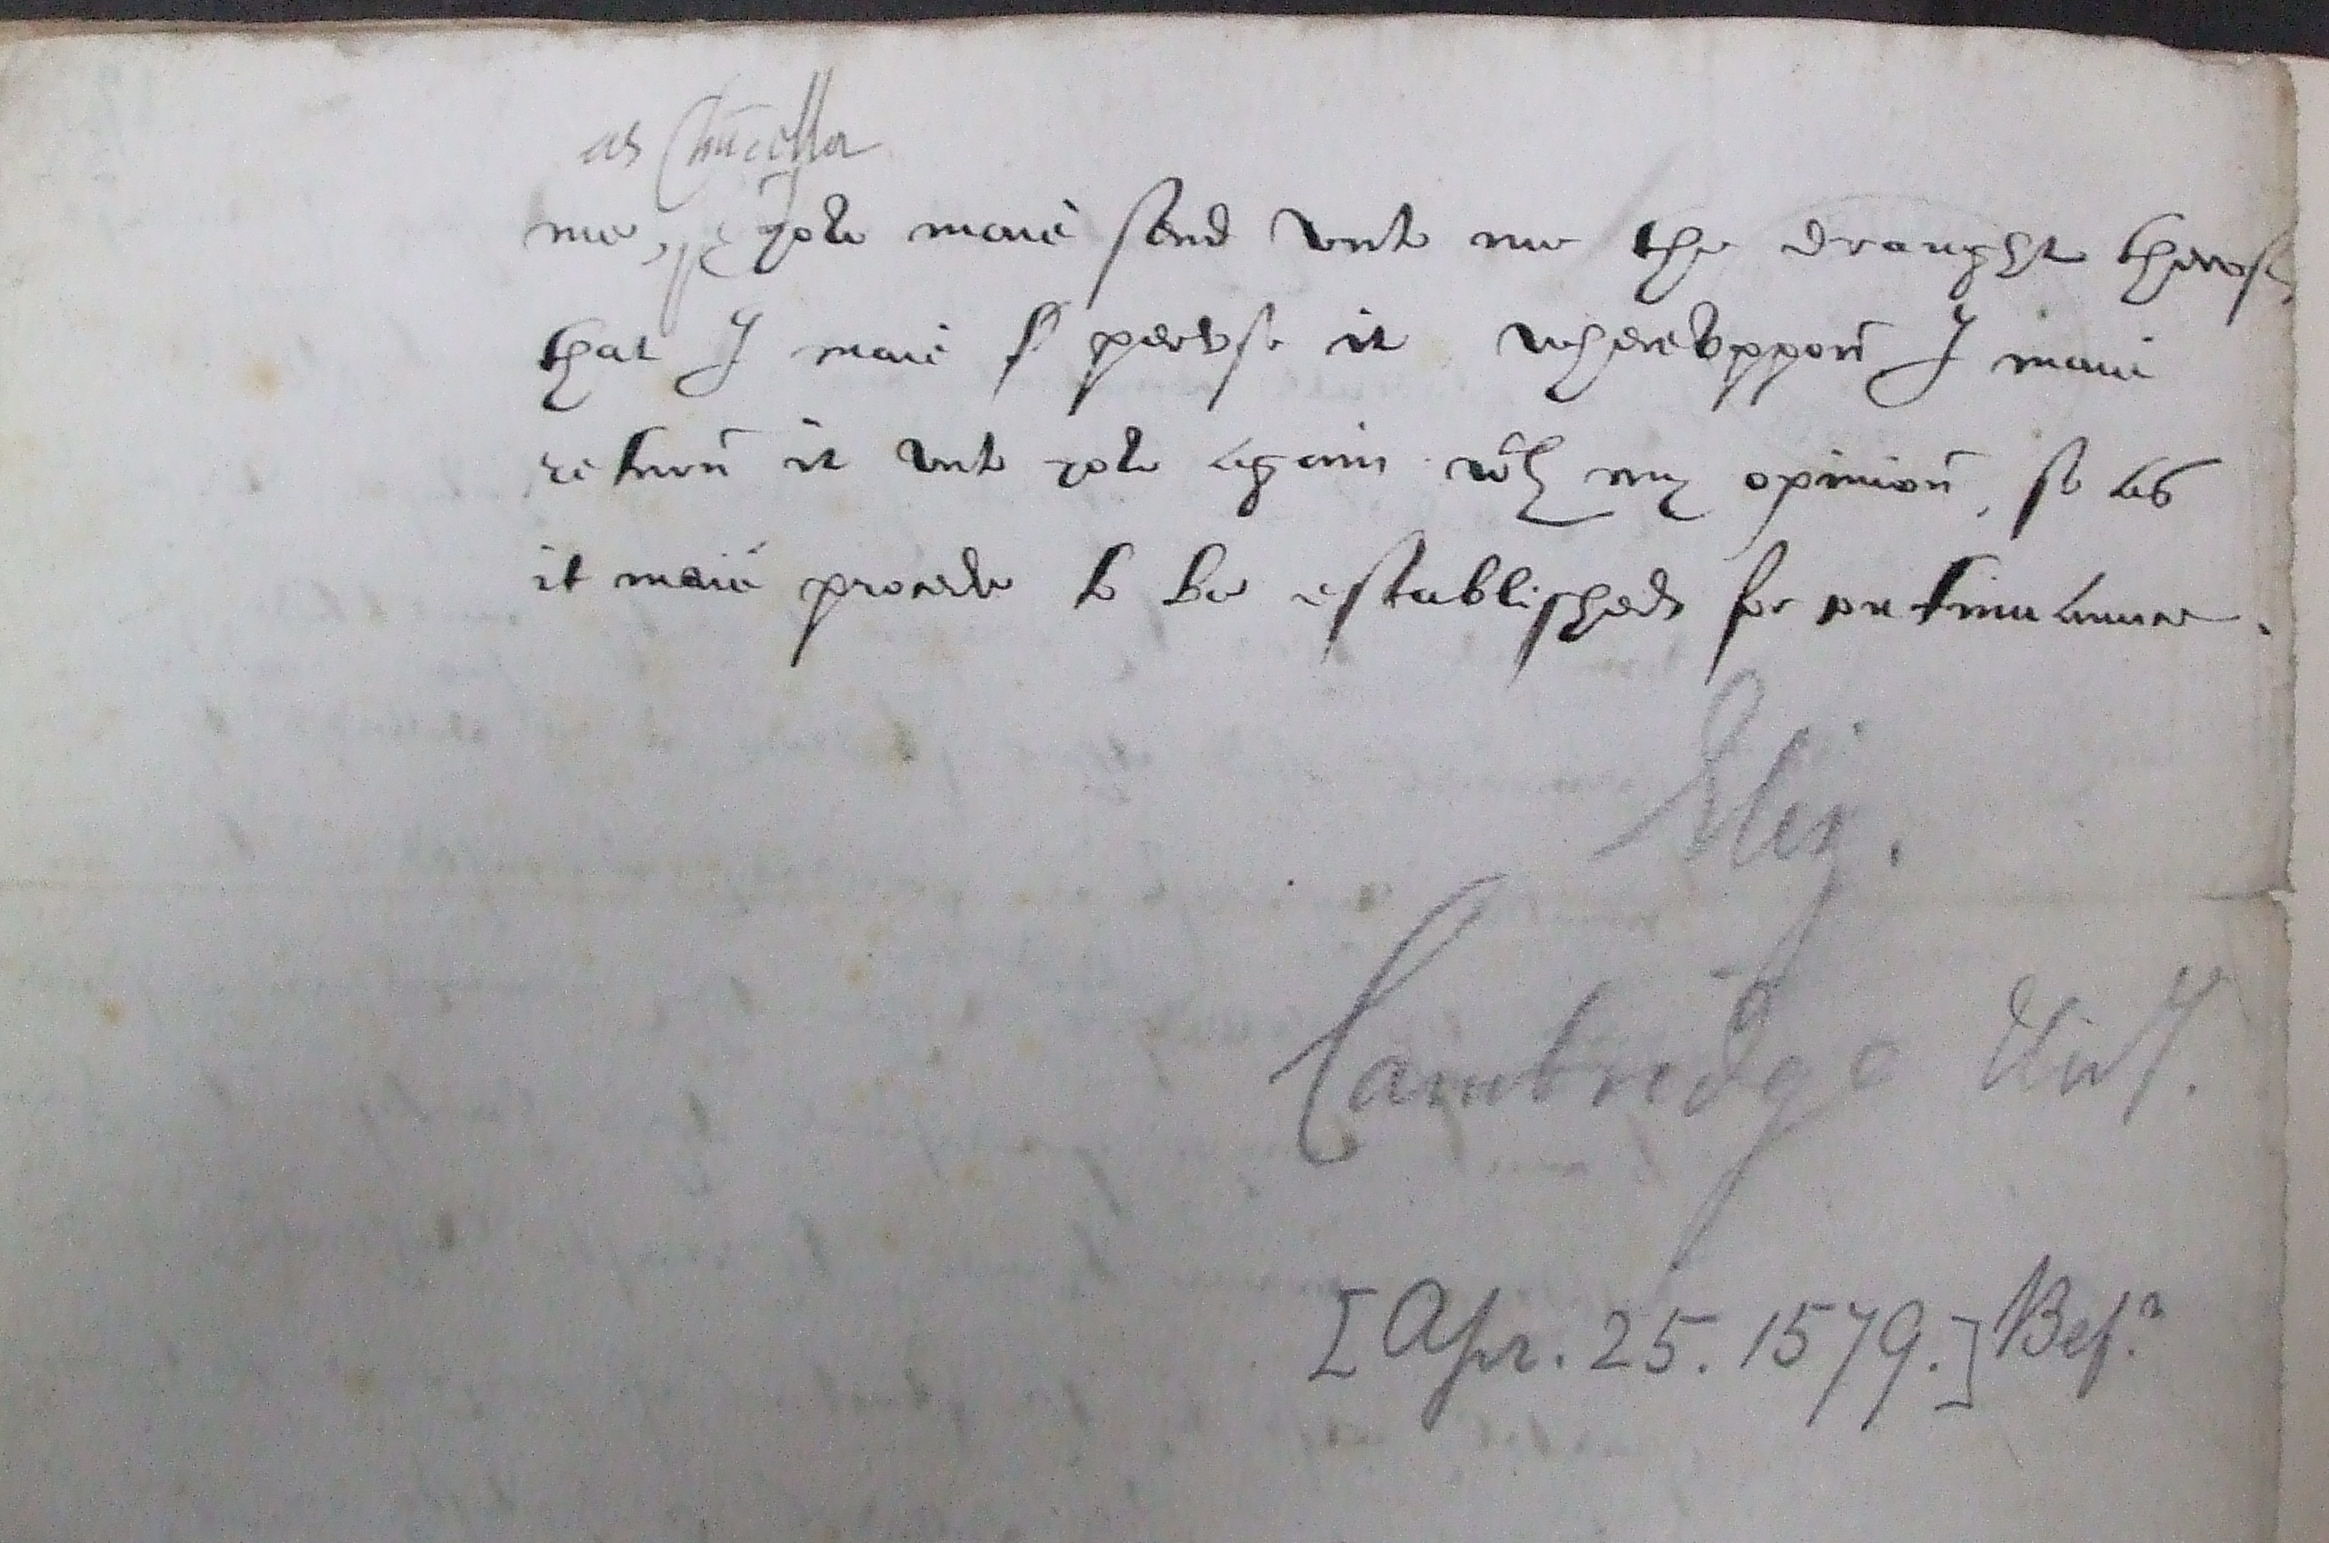 as Chācellor
me, yow maie send vnto me the draught therof,
that I maie peruse it wherevppon̄ I maie
return̄ it vnto yow again wth my opinion̄, so as
it maie procede to be established for contynuance.
Eliz.
Cambridge Univ.
[Apr. 25. 1579.] Bef.